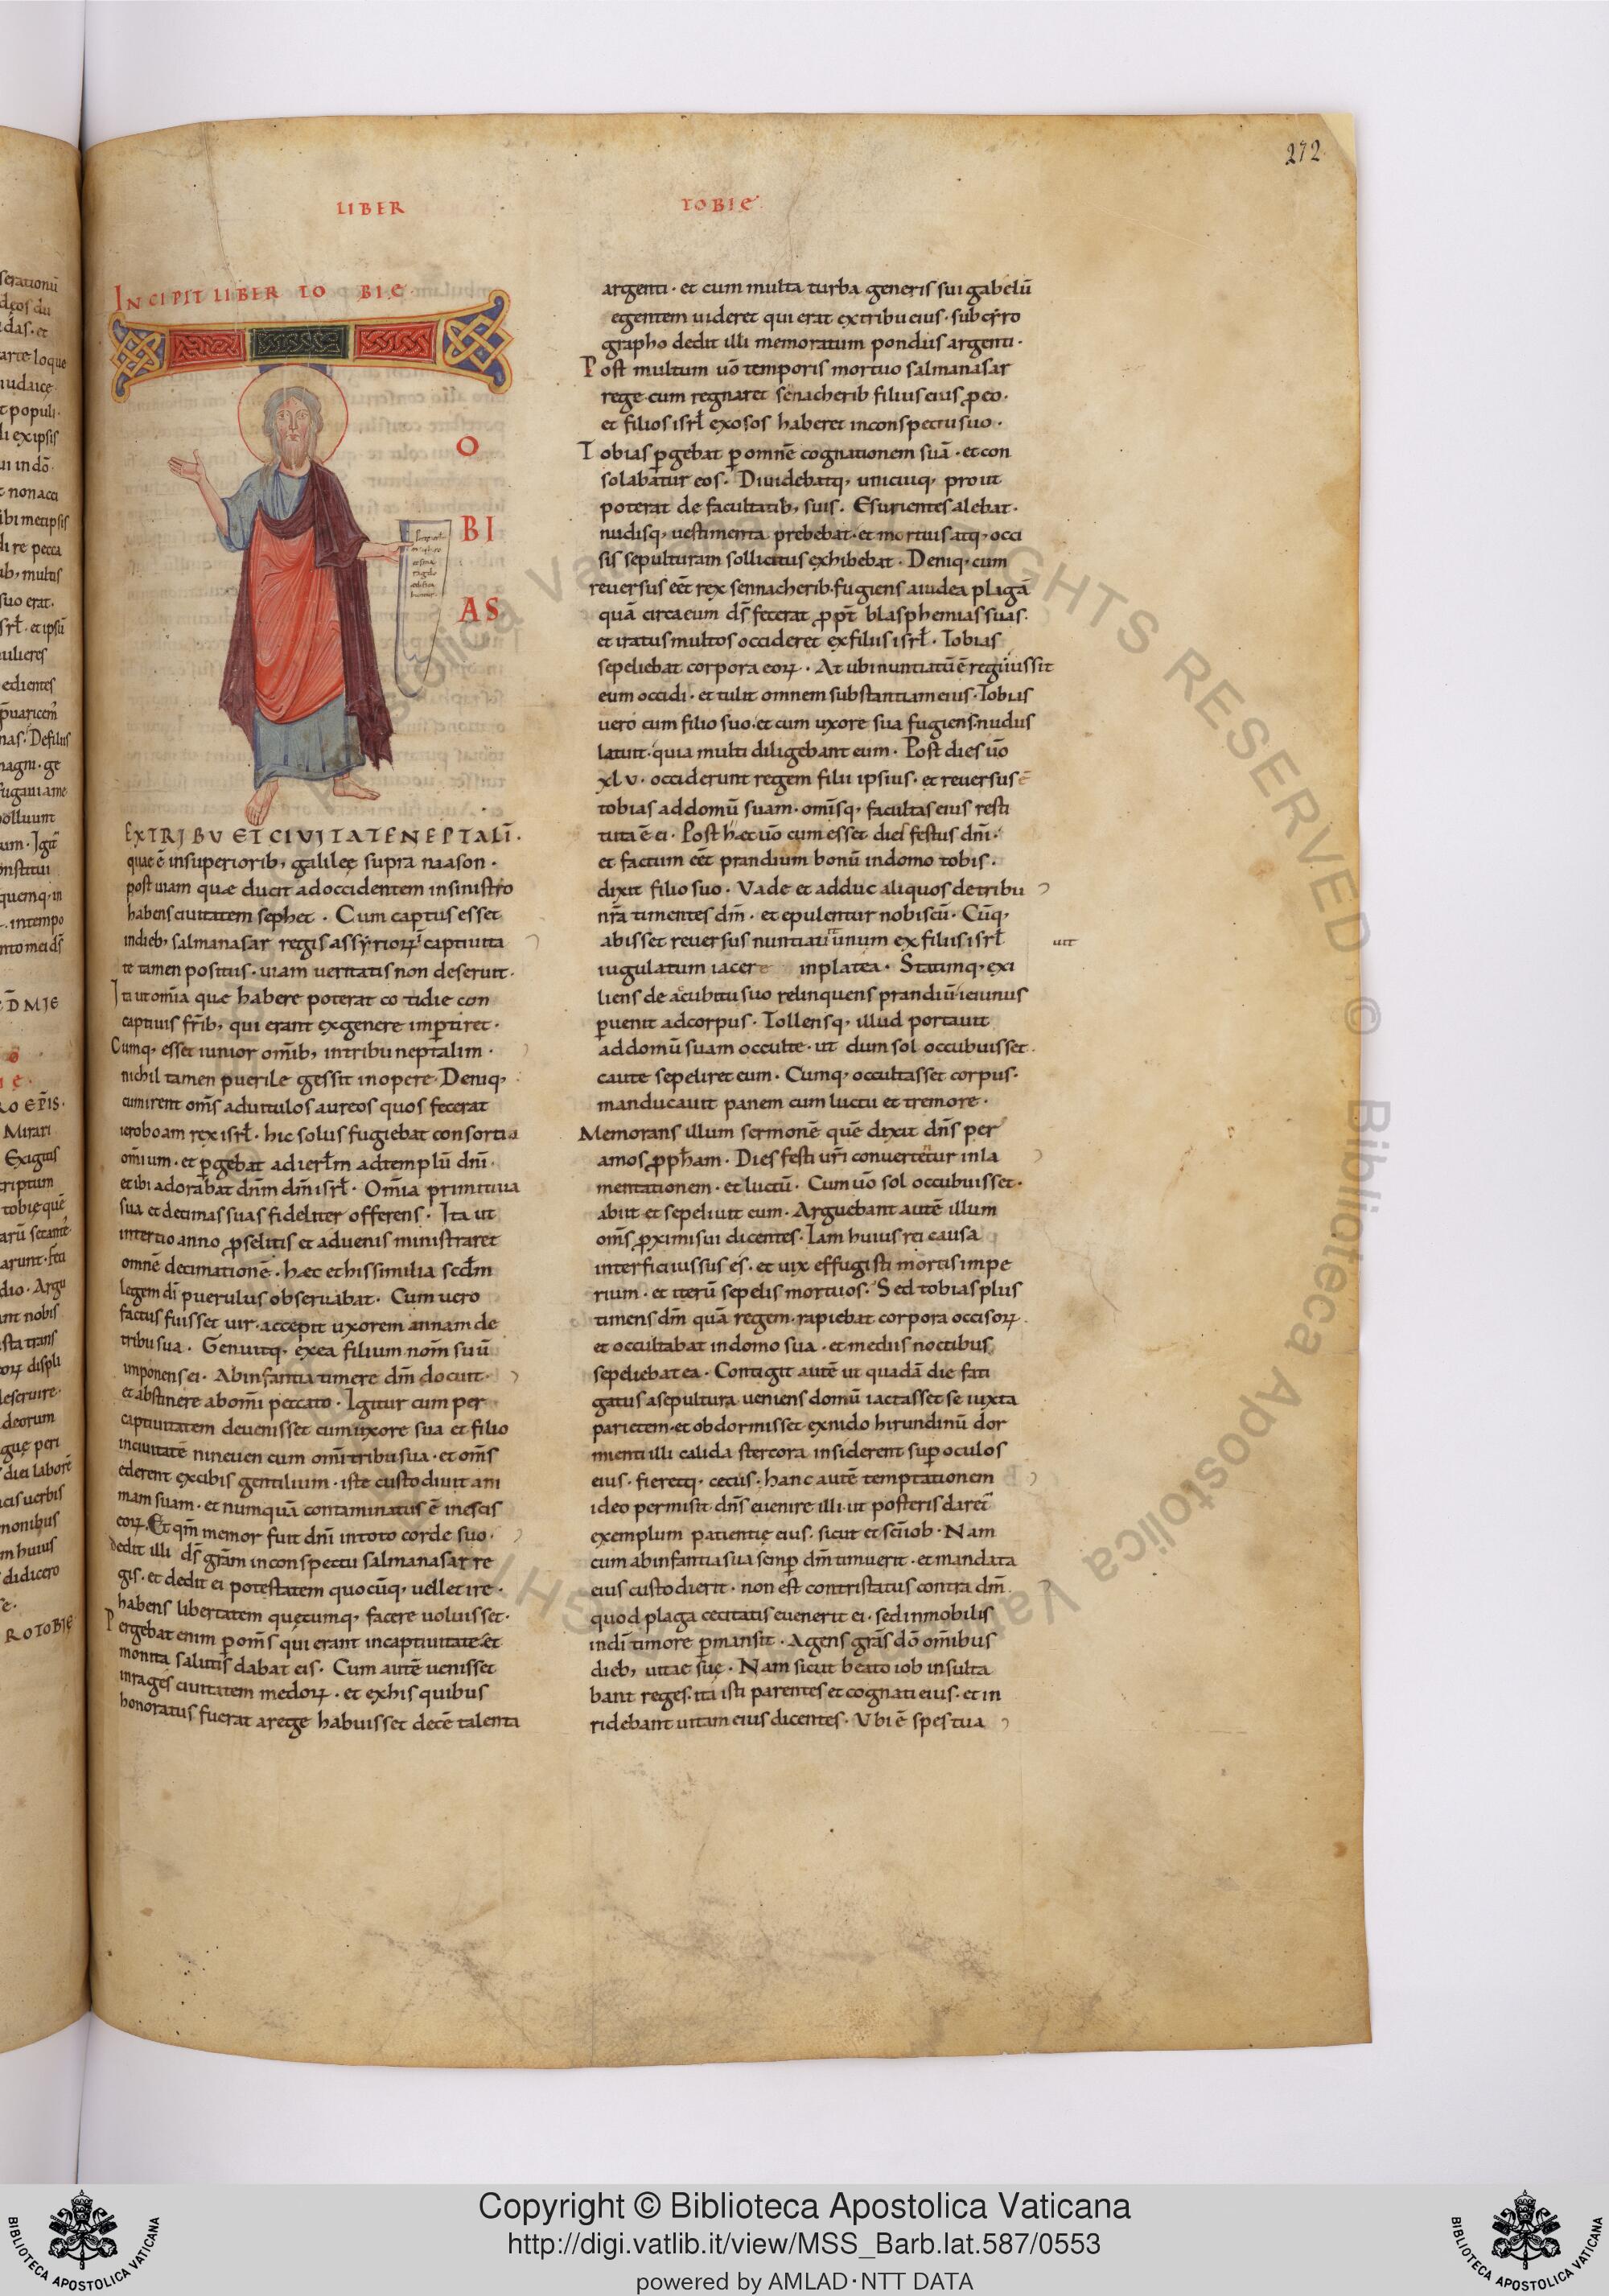 272
LIBER TOBIE
INCIPIT LIBER TOBIE
T
O
BI
AS
EX TRIBU ET CIVITATE NEPTALĪ.
quae ē insuperiorib; galileę supra naason.
post uiam quae ducit adoccidentem insinistro
habens ciuitatem sephet. Cum captus esset
indieb; salmanasar regis assyrioꝝ ī captiuita
te tamen positus. uiam ueritatis non deseruit.
Ita ut om̄ia que habere poterat cotidie con
captiuis fr̄ib; qui erant exgenere imꝑtiret.
Cumq; esset iunior om̄ib; intribu neptalim.
nichil tamen puerile gessit inopere. Deniq;
cum irent om̄s aduitulos aureos quos fecerat
ieroboam rex isrł. hic solus fugiebat consortia
om̄ium. et ꝑgebat ad ierłm adtemplū dnī.
et ibi adorabat dnm̄ dm̄ isrł. Om̄ia primitiua
sua et decimas suas fideliter offerens. Ita ut
intertio anno p̱selitis et aduenis ministraret
omnē decimationē. hæc et his similia scđm
legem dī puerulus obseruabat. Cum uero
factus fuisset uir. accepit uxorem annam de
tribu sua. Genuitq; exea filium nom̄ suū
imponens ei. Abinfantia timere dm̄ docuit.
et abstinere abomī peccato. Igitur cum per
captiuitatem deuenisset cum uxore sua et filio
inciuitatē nineuen cum omī tribu sua. et om̄s
ederent excibis gentilium. iste custodiuit ani
mam suam. et numquā contaminatus ē inescis
eoꝝ. Et qm̄ memor fuit dnī intoto corde suo.
dedit illi ds̄ grām inconspectu salmanasar re
gis. et dedit ei potestatem quocūq; uellet ire.
habens libertatem quęcumq; facere uoluisset.
Pergebat enim ꝑ om̄s qui erant incaptiuitate. et
monita salutis dabat eis. Cum autē uenisset
inrages ciuitatem medoꝝ. et exhis quibus
honoratus fuerat arege habuisset decē talenta
argenti. et cum multa turba generis sui gabelū
egentem uideret qui erat extribu eius. sub cyro
grapho dedit illi memoratum pondus argenti.
Post multum uō temporis mortuo salmanasar
rege. cum regnaret senacherib filius eius p̱ eo.
et filios isrł exosos haberet inconspectu suo.
Tobias ꝑgebat ꝑ omnē cognationem suā. et con
solabatur eos. Diuidebatq; unicuiq; prout
poterat de facultatib; suis. Esurientes alebat.
nudisq; uestimenta prebebat. et mortuis atq; occi
sis sepulturam sollicitus exhibebat. Deniq; cum
reuersus eēt rex sennacherib. fugiens aiudea plagā
quā circa eum ds̄ fecerat p̱pt̄ blasphemias suas.
et iratus multos occideret exfiliis isrł. Tobias
sepeliebat corpora eoꝝ. At ubi nuntiatū ē regi iussit
eum occidi. et tulit omnem substantiam eius. Tobias
uero cum filio suo. et cum uxore sua fugiens. nudus
latuit. quia multi diligebant eum. Post dies uō
xlv. occiderunt regem filii ipsius. et reuersus ē
tobias addomū suam. om̄isq; facultas eius resti
tuta ē ei. Post hæc uō cum esset dies festus dnī.
et factum eēt prandium bonū indomo tobis.
dixit filio suo. Vade et adduc aliquos detribu
nr̄a timentes dm̄. et epulentur nobiscū. Cūq;
abisset reuersus nuntiauit unum ex filiis isrł
uit
iugulatum iacere inplatea. Statimq; exi
liens de accubitu suo relinquens prandiū. ieiunus
ꝑuenit adcorpus. Tollensq; illud portauit
addomū suam occulte. ut dum sol occubuisset.
caute sepeliret eum. Cumq; occultasset corpus.
manducauit panem cum luctu et tremore.
Memorans illum sermonē quē dixit dn̄s per
amos p̱pħam. Dies festi ur̄i conuertētur inla
mentationem. et luctū. Cum uō sol occubuisset.
abiit et sepeliuit eum. Arguebant autē illum
om̄s p̱ximi sui dicentes. Iam huius rei causa
interfici iussus es. et uix effugisti mortis impe
rium. et iterū sepelis mortuos. Sed tobias plus
timens dm̄ quā regem. rapiebat corpora occisoꝝ.
et occultabat indomo sua. et mediis noctibus
sepeliebat ea. Contigit autē ut quadā die fati
gatus asepultura ueniens domū iactasset se iuxta
parietem. et obdormisset. exnido hirundinū dor
mienti illi calida stercora insiderent suꝑ oculos
eius. fieretq; cecus. hanc autē temptationem
ideo permisit dn̄s euenire illi. ut posteris daret̄
exemplum patientię eius. sicut et sc̄i iob. Nam
cum abinfantia sua semꝑ dm̄ timuerit. et mandata
eius custodierit. non est contristatus contra dm̄.
quod plaga cecitatis euenerit ei. sed inmobilis
indī timore ꝑmansit. Agens grās dō om̄ibus
dieb; uitae suę. Nam sicut beato iob insulta
bant reges. ita isti parentes et cognati eius. et in
ridebant uitam eius dicentes. Vbi ē spes tua
Copyright © Biblioteca Apostolica Vaticana
http://digi.vatlib.it/view/MSS_Barb.lat.587/0553
powered by AMLAD·NTT DATA
BIBLIOTECA APOSTOLICA VATICANA
BIBLIOTECA APOSTOLICA VATICANA